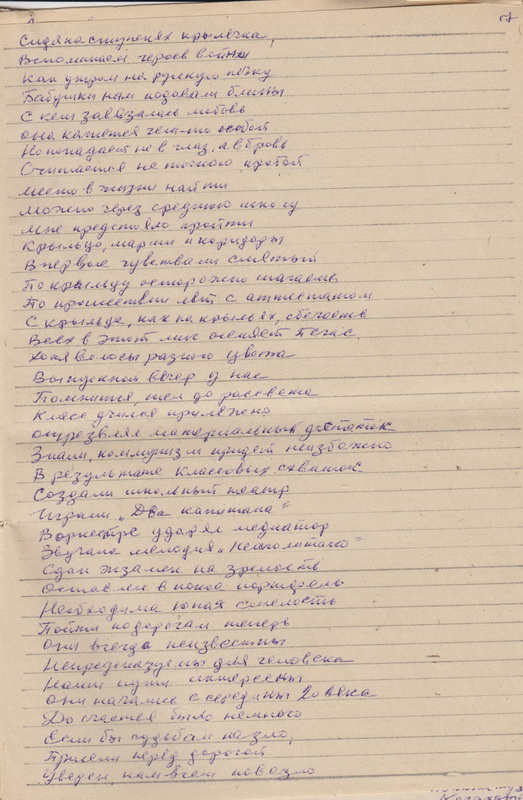 Сидя на ступенях крылечка,
Вспоминаем героев войны
Как утром на русскую печку
Бабушки нам подавали блины
С кем завязалась любовь
Она кажется чем-то особой
Но попадает не в глаз, а в бровь
Считается не точною пробой
Место в жизни найти
Можно через среднюю школу
Мне предстояло пройти
Крыльцо, марши и коридоры
Впервые чувствами смятый
По крыльцу осторожно шагаешь
По прошествии лет с аттестатом
С крыльца, как на крыльях, сбегаешь
Всех в этот миг осеняет Пегас,
Хотя волосы разного цвета
Выпускной вечер у нас
Помнится шел до рассвета
Класс учился прилежно
отрезвлял материальный достаток
Знали, коммунизм придет неизбежно
В результате классовых схваток
Создали школьный театр
Играли "Два капитана"
В оркестре ударял медиатор
Звучала мелодия "Неаполитана"
Сдан экзамен на зрелость
Оставлен в покое портфель
Необходима юная смелость
Пойти по дорогам теперь
Они всегда неизвестны
Непредсказуемы для человека
Наши пути интересны
Они начались с середины 20 века
До счастья было немного
Если бы судьбам на зло,
Присели перед дорогой
Уверен, нам всем повезло